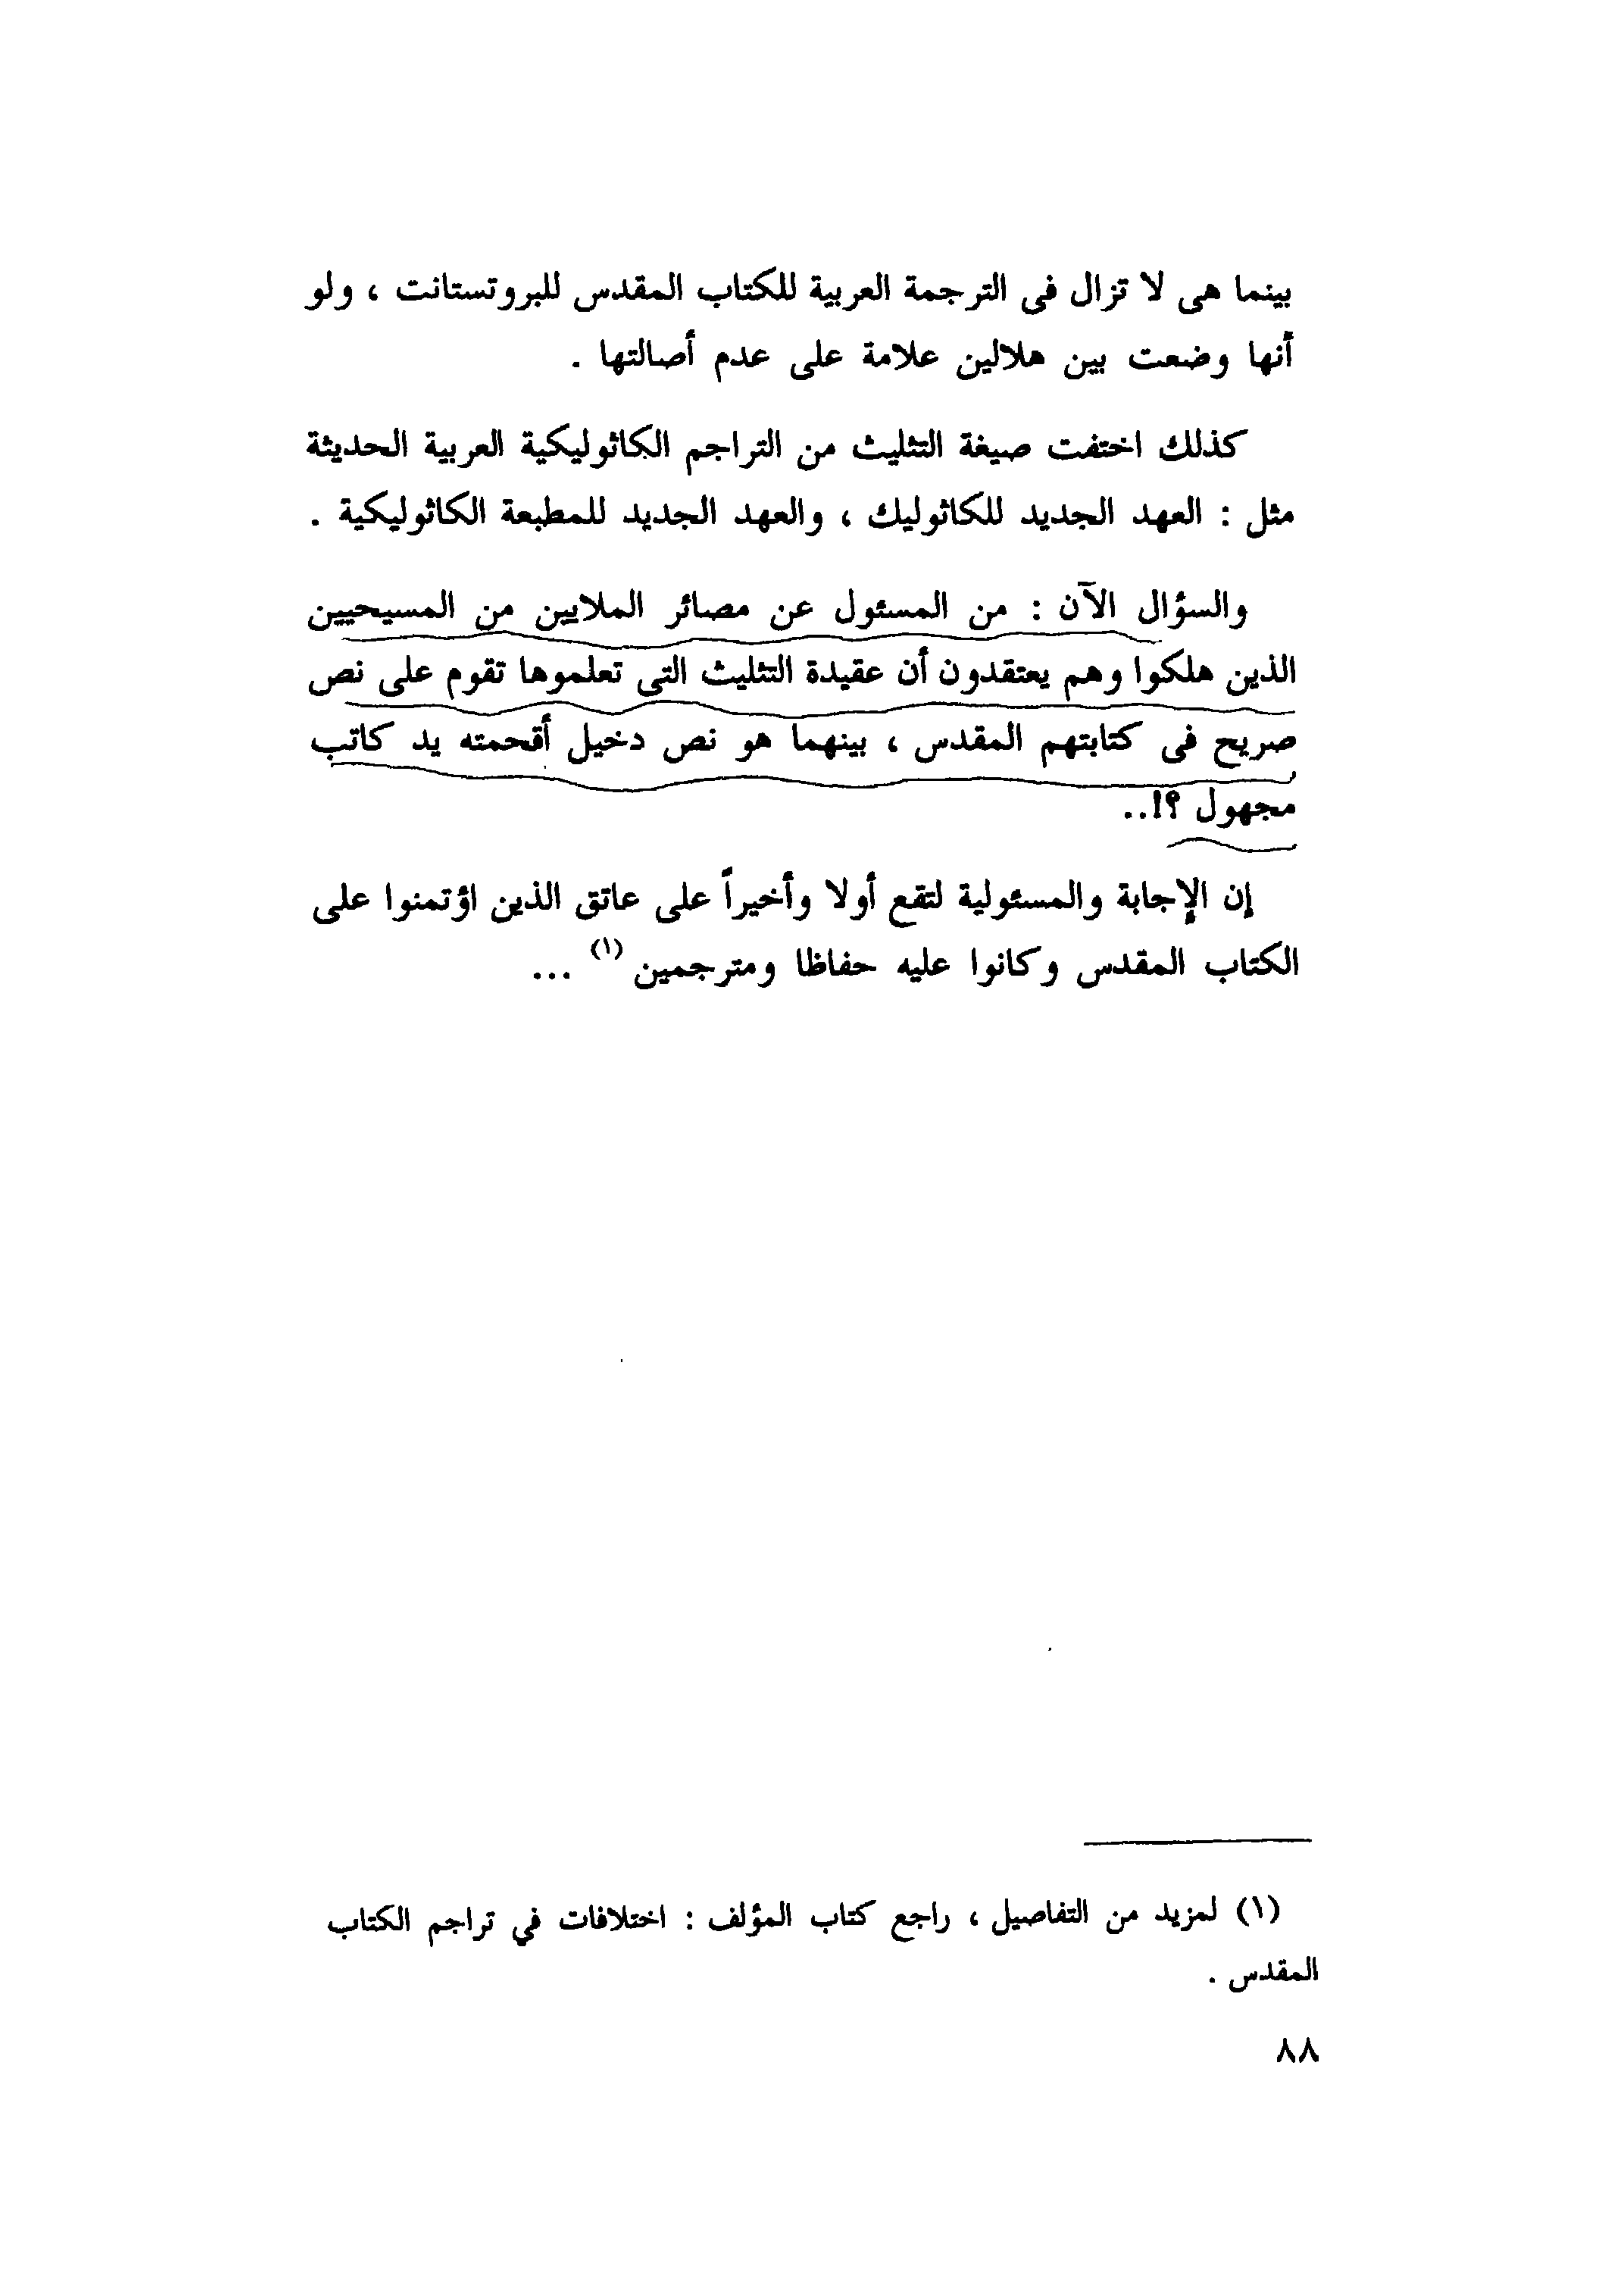 بينما هى لا تزال فى الترجمة العربية للكتاب المقدس للبروتستانت ، ولو
أنها وضعت بين هلالين علامة على عدم أصالتها .
كذلك اختفت صيغة التثليث من التراجم الكاثوليكية العربية الحديثة
مثل : العهد الجديد للكاثوليك ، والعهد الجديد للمطبعة الكاثوليكية .
والسؤال الآن : من المسئول عن مصائر الملايين من المسيحيين
الذين هلكوا وهم يعتقدون أن عقيدة التثليث التى تعلموها تقوم على نص
صريح فى كتابتهم المقدس ، بينهما هو نص دخيل أقحمته يد كاتب
مجهول ؟!..
إن الإجابة والمسئولية لتقع أولا وأخيراً على عاتق الذين اؤتمنوا على
الكتاب المقدس وكانوا عليه حفاظا ومترجمين (١) ...
(١) لمزيد من التفاصيل ، راجع كتاب المؤلف : اختلافات في تراجم الكتاب
المقدس .
٨٨